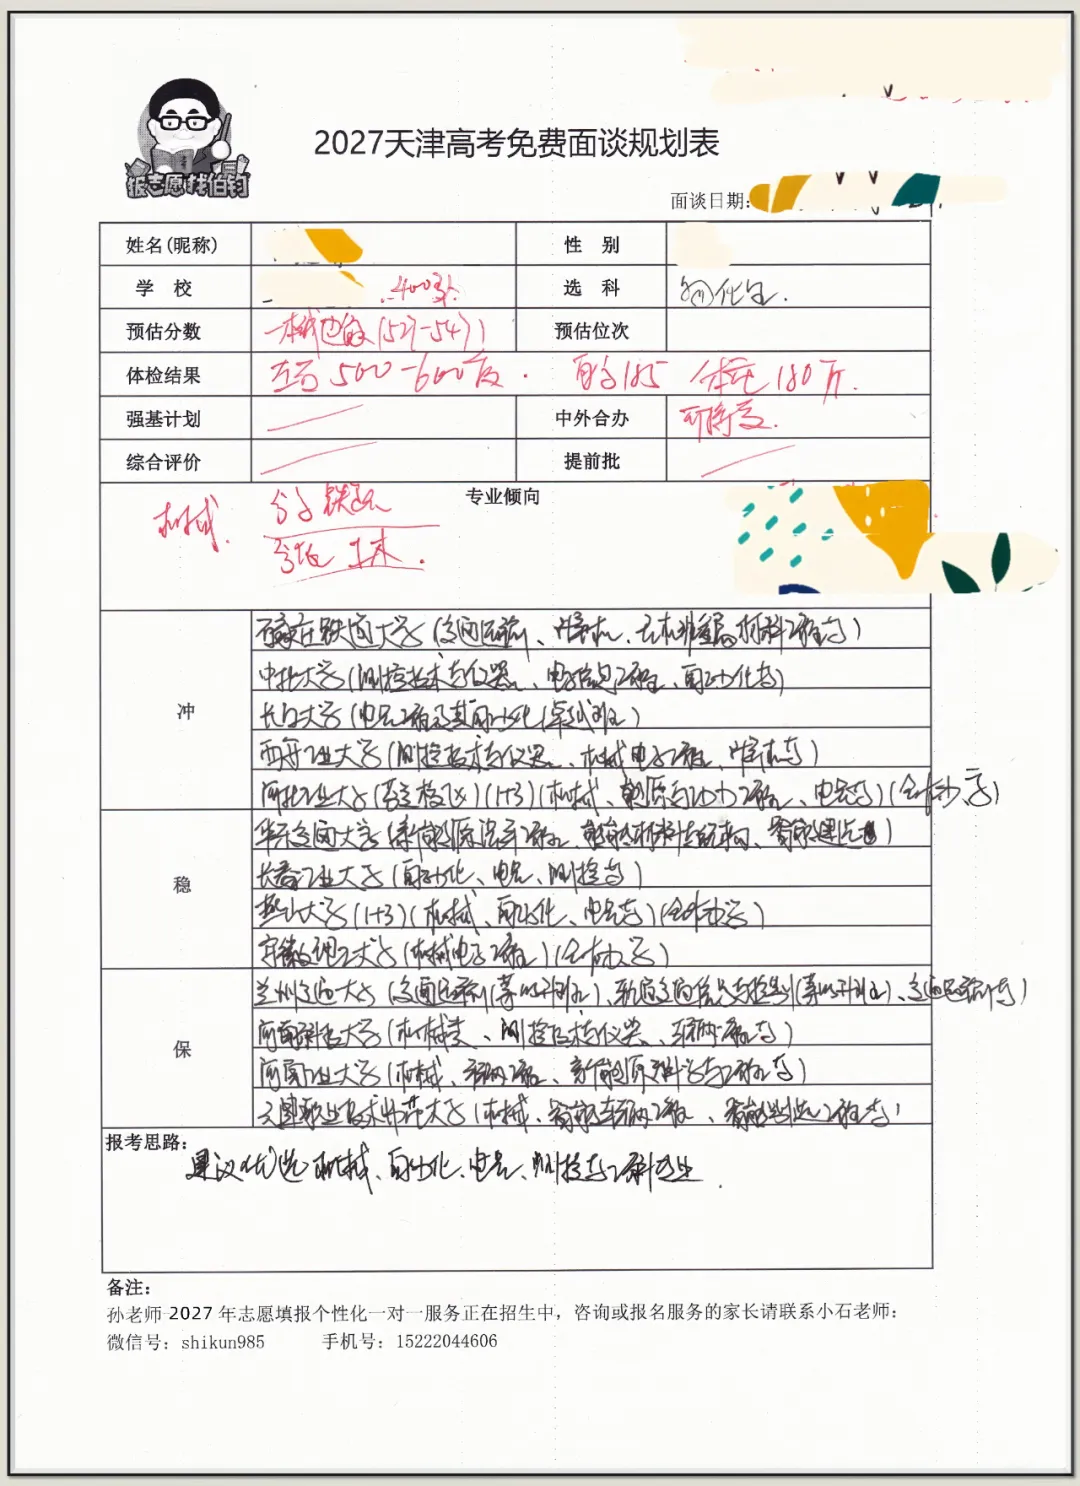 报志愿找伯钊
2027天津高考免费面谈规划表
面谈日期:
姓名(昵称) 性 别
学 校 400多 选 科 物化生.
预估分数 预估位次
体检结果 左右500-600度. 身高185 体重180斤.
强基计划 中外合办 可接受.
综合评价 提前批
专业倾向
机械. 父子铁路
土木.
冲
石家庄铁道大学(交通运输、计算机、材料工程等)
中北大学(测控技术与仪器、电子信息工程、自动化等)
长安大学(电气工程及其自动化(卓越班))
西安工业大学(测控技术与仪器、机械电子工程、计算机等)
河北工业大学(1+3)(机械、能源与动力工程、电气等)(合作办学)
稳
华东交通大学(新能源汽车工程、智能建造)
长春工业大学(自动化、电气、测控等)
燕山大学(1+3)(机械、自动化、电气等)(合作办学)
安徽理工大学(机械电子工程)(合作办学)
保
兰州交通大学(交通运输、轨道交通信号与控制、交通运输等)
河南科技大学(机械类、测控技术与仪器、车辆工程等)
河南工业大学(机械、车辆工程、新能源科学与工程等)
天津职业技术师范大学(机械、智能车辆工程、智能制造工程等)
报考思路:
建议优选机械、自动化、电气、测控等工科专业.
备注:
孙老师-2027年志愿填报个性化一对一服务正在招生中，咨询或报名服务的家长请联系小石老师:
微信号: shikun985 手机号: 15222044606